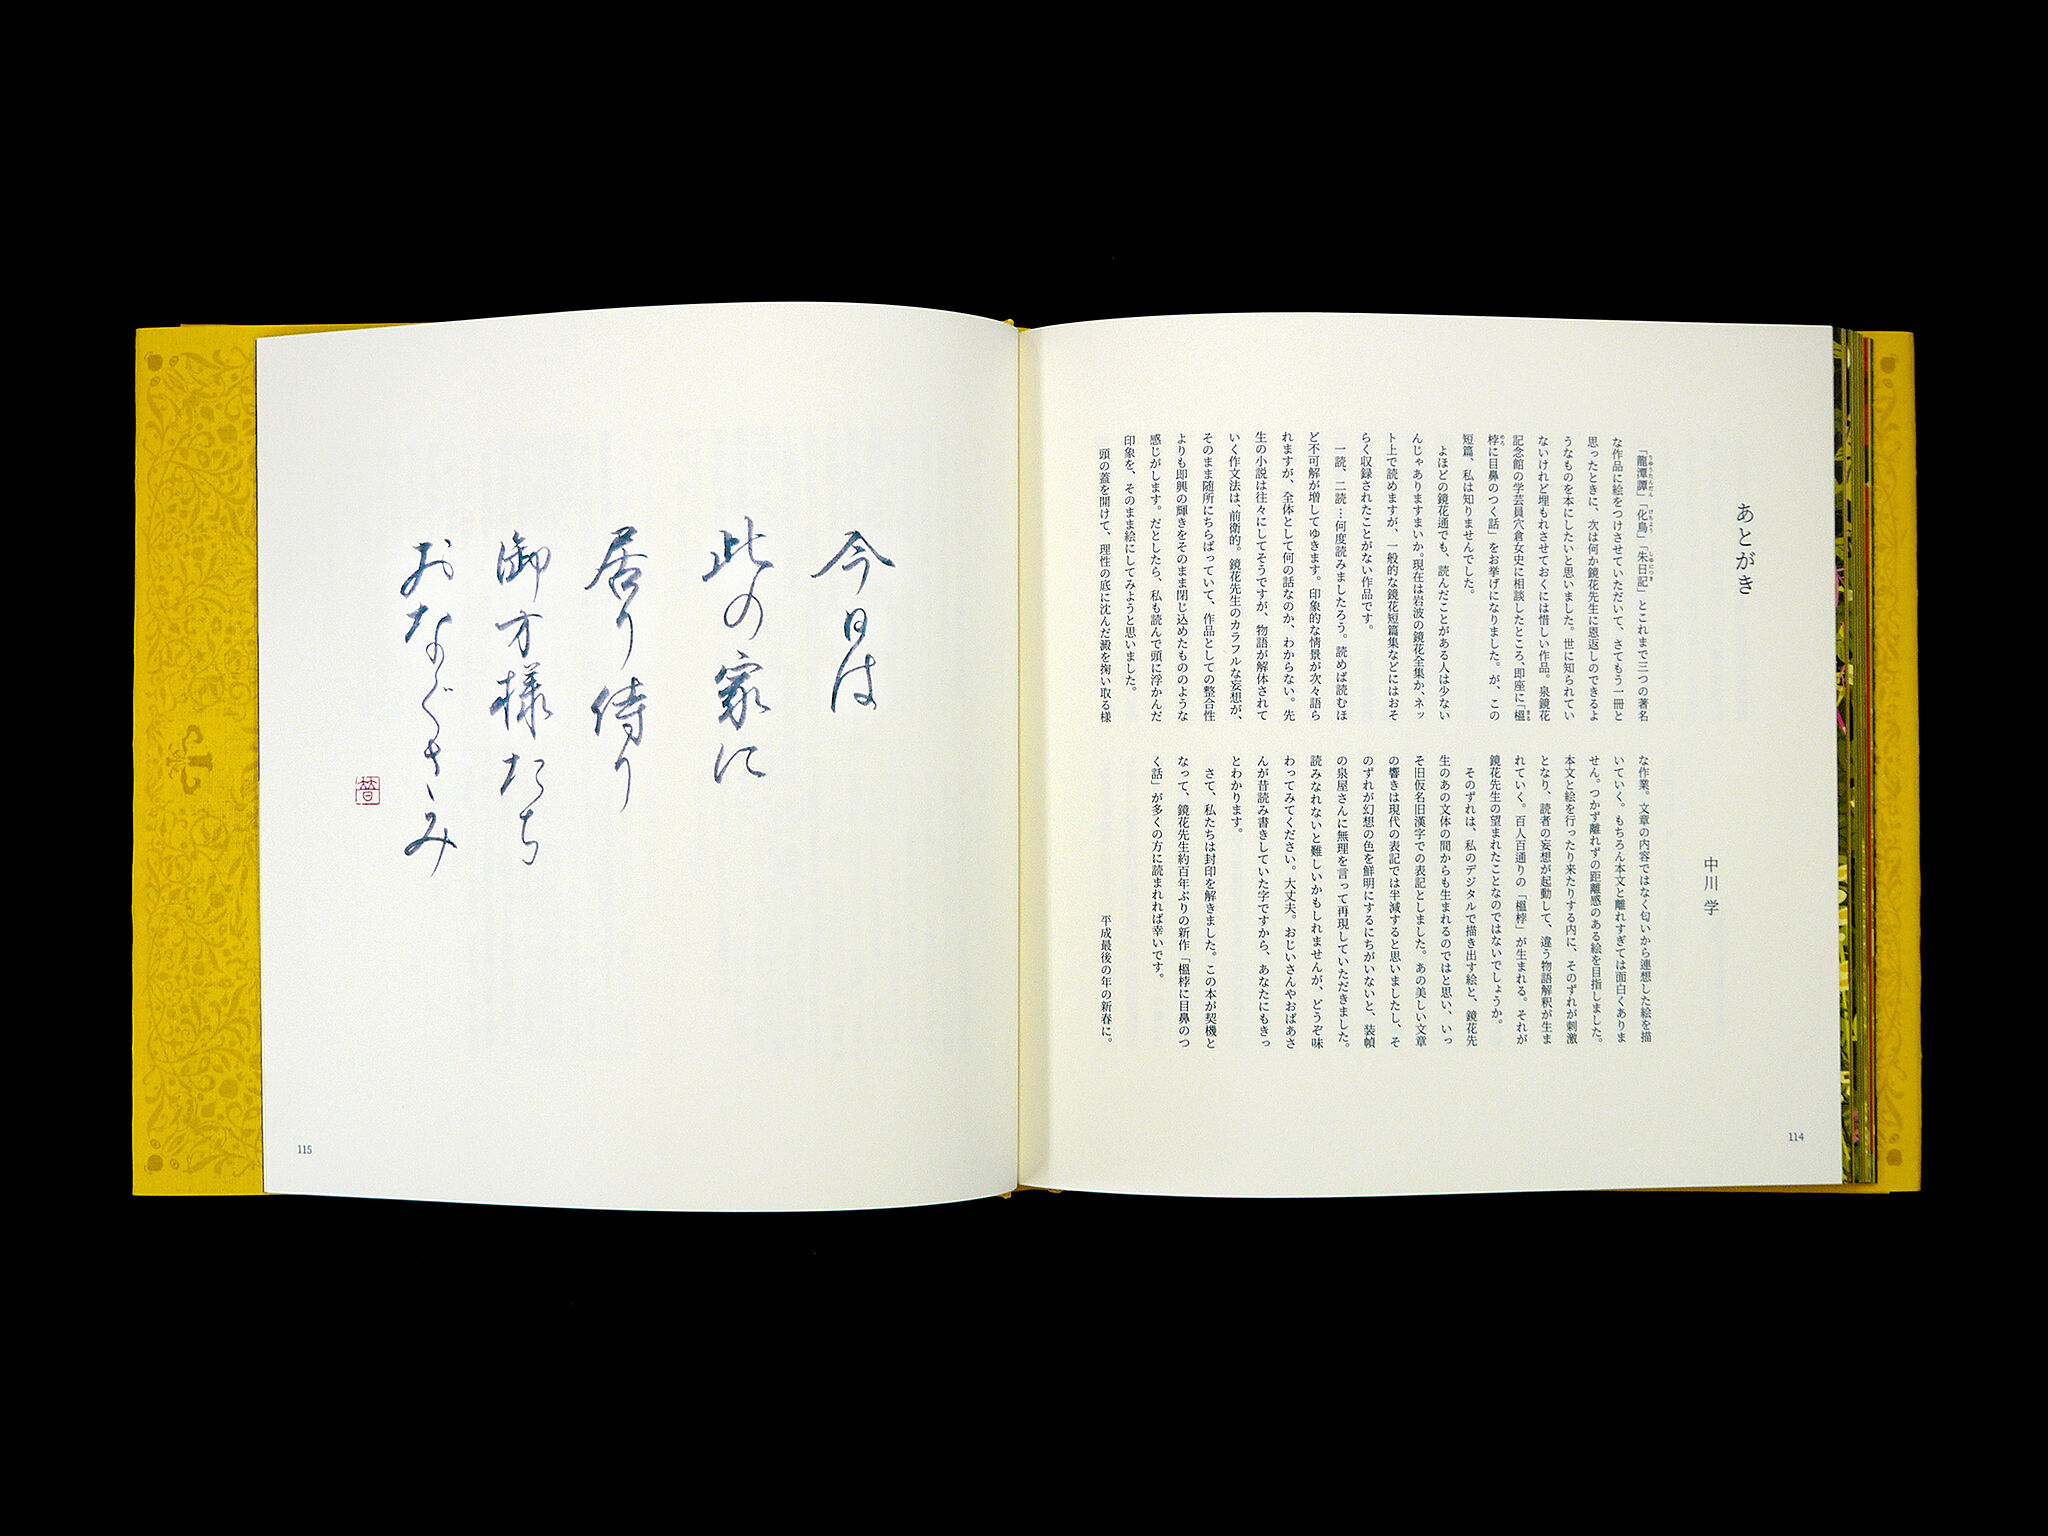 あとがき
中川 学
「龍潭譚」「化鳥」「朱日記」とこれまで三つの著名
な作品に絵をつけさせていただいて、さてもう一冊と
思ったときに、次は何か鏡花先生に恩返しのできるよ
うなものを本にしたいと思いました。世に知られてい
ないけれど埋もれさせておくには惜しい作品。泉鏡花
記念館の学芸員穴倉女史に相談したところ、即座に「榲
桲に目鼻のつく話」をお挙げになりました。が、この
短篇、私は知りませんでした。
よほどの鏡花通でも、読んだことがある人は少ない
んじゃありますまいか。現在は岩波の鏡花全集か、ネッ
ト上で読めますが、一般的な鏡花短篇集などにはおそ
らく収録されたことがない作品です。
一読、二読…何度読みましたろう。読めば読むほ
ど不可解が増してゆきます。印象的な情景が次々語ら
れますが、全体として何の話なのか、わからない。先
生の小説は往々にしてそうですが、物語が解体されて
いく作文法は、前衛的。鏡花先生のカラフルな妄想が、
そのまま随所にちらばっていて、作品としての整合性
よりも即興の輝きをそのまま閉じ込めたもののような
感じがします。だとしたら、私も読んで頭に浮かんだ
印象を、そのまま絵にしてみようと思いました。
頭の蓋を開けて、理性の底に沈んだ澱を掬い取る様
な作業。文章の内容ではなく匂いから連想した絵を描
いていく。もちろん本文と離れすぎては面白くありま
せん。つかず離れずの距離感のある絵を目指しました。
本文と絵を行ったり来たりする内に、そのずれが刺激
となり、読者の妄想が起動して、違う物語解釈が生ま
れていく。百人百通りの「榲桲」が生まれる。それが
鏡花先生の望まれたことなのではないでしょうか。
そのずれは、私のデジタルで描き出す絵と、鏡花先
生のあの文体の間からも生まれるのではと思い、いっ
そ旧仮名旧漢字での表記としました。あの美しい文章
の響きは現代の表記では半減すると思いましたし、そ
のずれが幻想の色を鮮明にするにちがいないと、装幀
の泉屋さんに無理を言って再現していただきました。
読みなれないと難しいかもしれませんが、どうぞ味
わってみてください。大丈夫。おじいさんやおばあさ
んが昔読み書きしていた字ですから、あなたにもきっ
とわかります。
さて、私たちは封印を解きました。この本が契機と
なって、鏡花先生約百年ぶりの新作「榲桲に目鼻のつ
く話」が多くの方に読まれれば幸いです。
平成最後の年の新春に。
114
今日は
此の家に
居り侍り
御方様たち
おなぐさみ
115